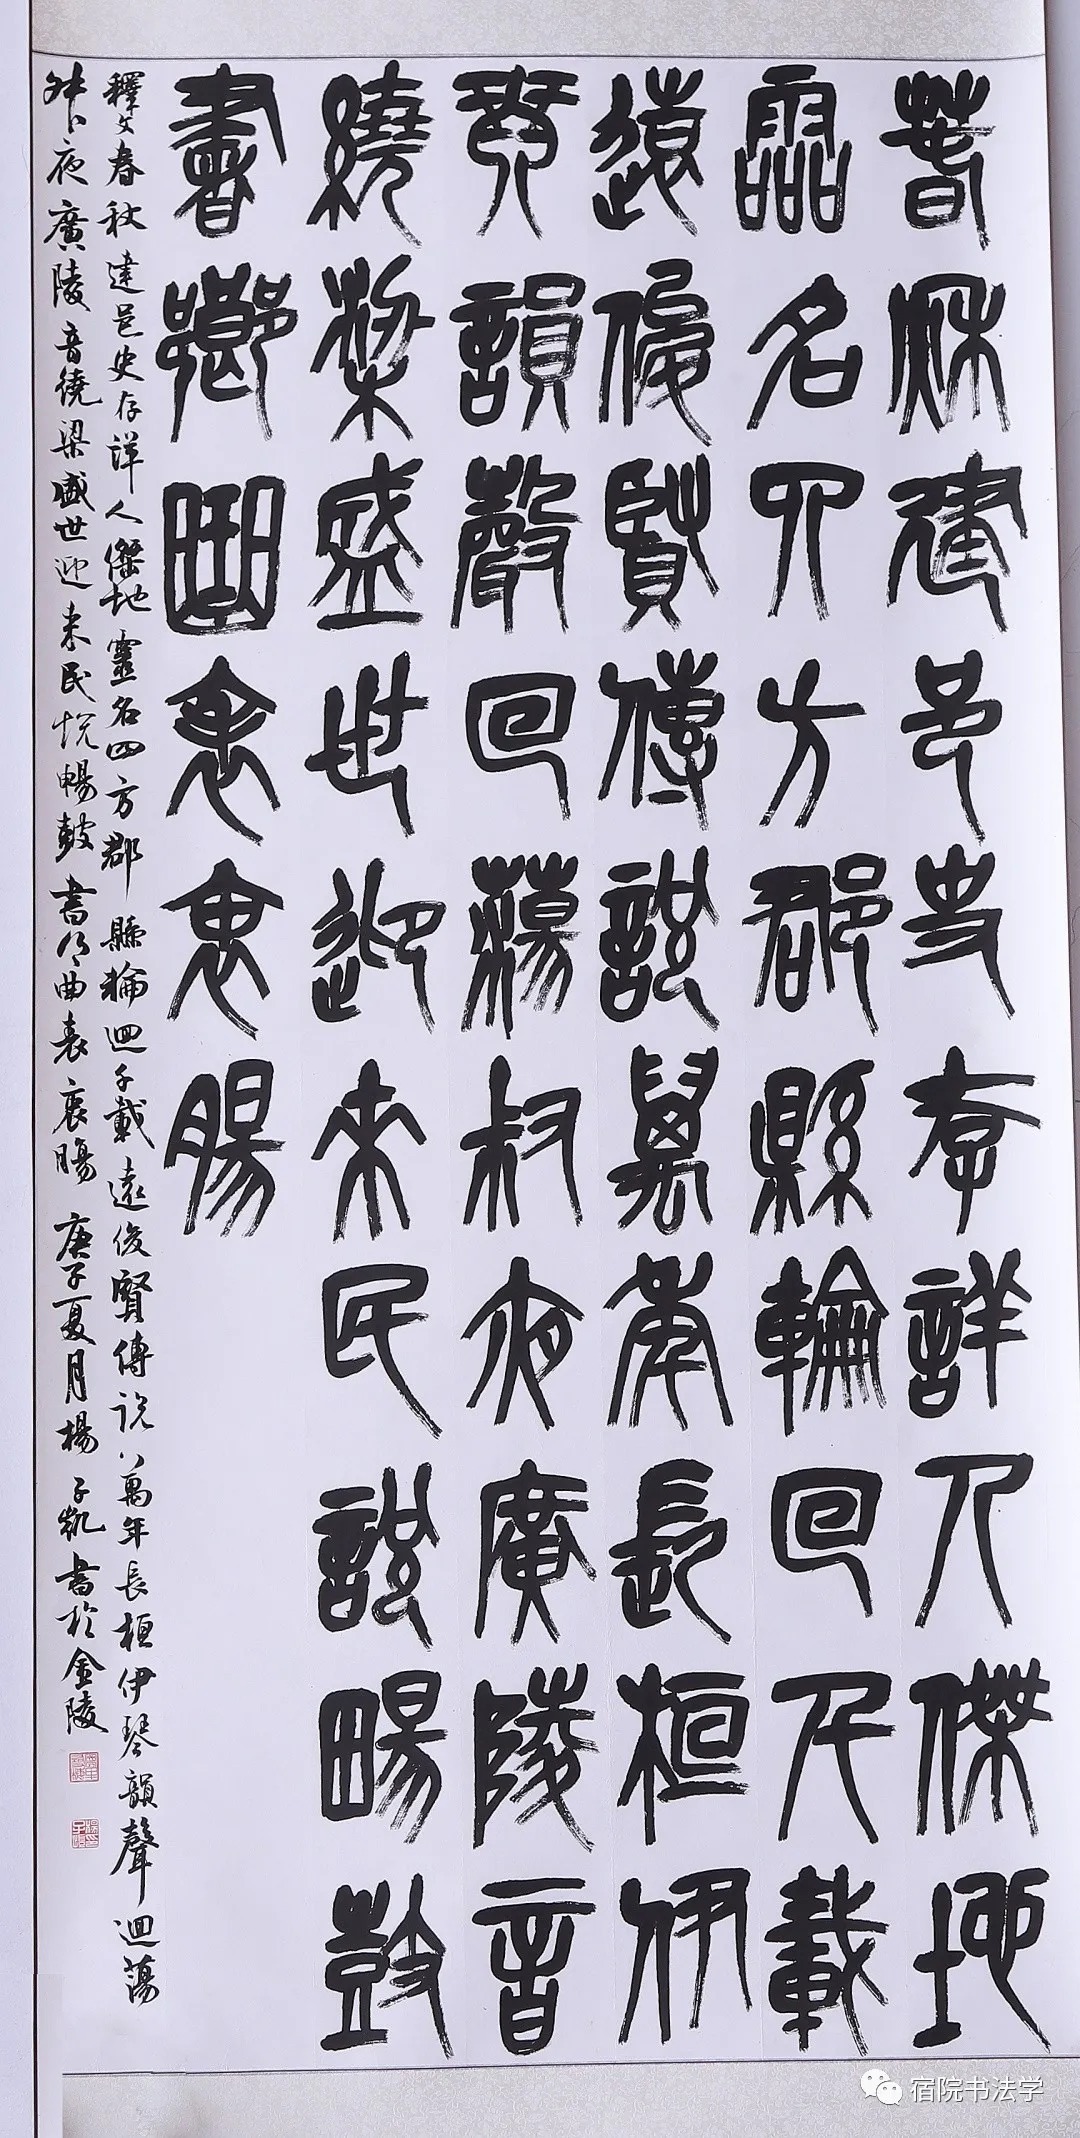 春秋建邑史存詳人傑地
靈名四方郡縣輪回千載
遠俊賢傳說萬年長桓伊
琴韻聲回蕩叔夜廣陵音
繞梁盛世迎來民說暢鼓
書鄉曲裹衷腸
釋文春秋建邑史存詳人傑地靈名四方郡縣輪迴千載遠俊賢傳說萬年長桓伊琴韻聲迴蕩
叔夜廣陵音繞梁盛世迎來民悅暢鼓書鄉曲裹衷腸庚子夏月楊子凱書於金陵
宿院书法学